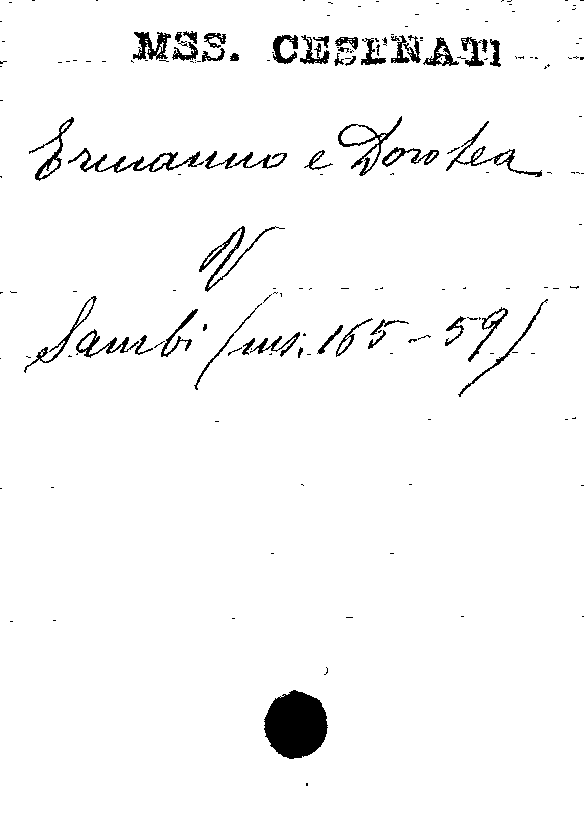 MSS. CESENATI
Ermanno e Dorotea
V
Sambi (ms. 165-59)